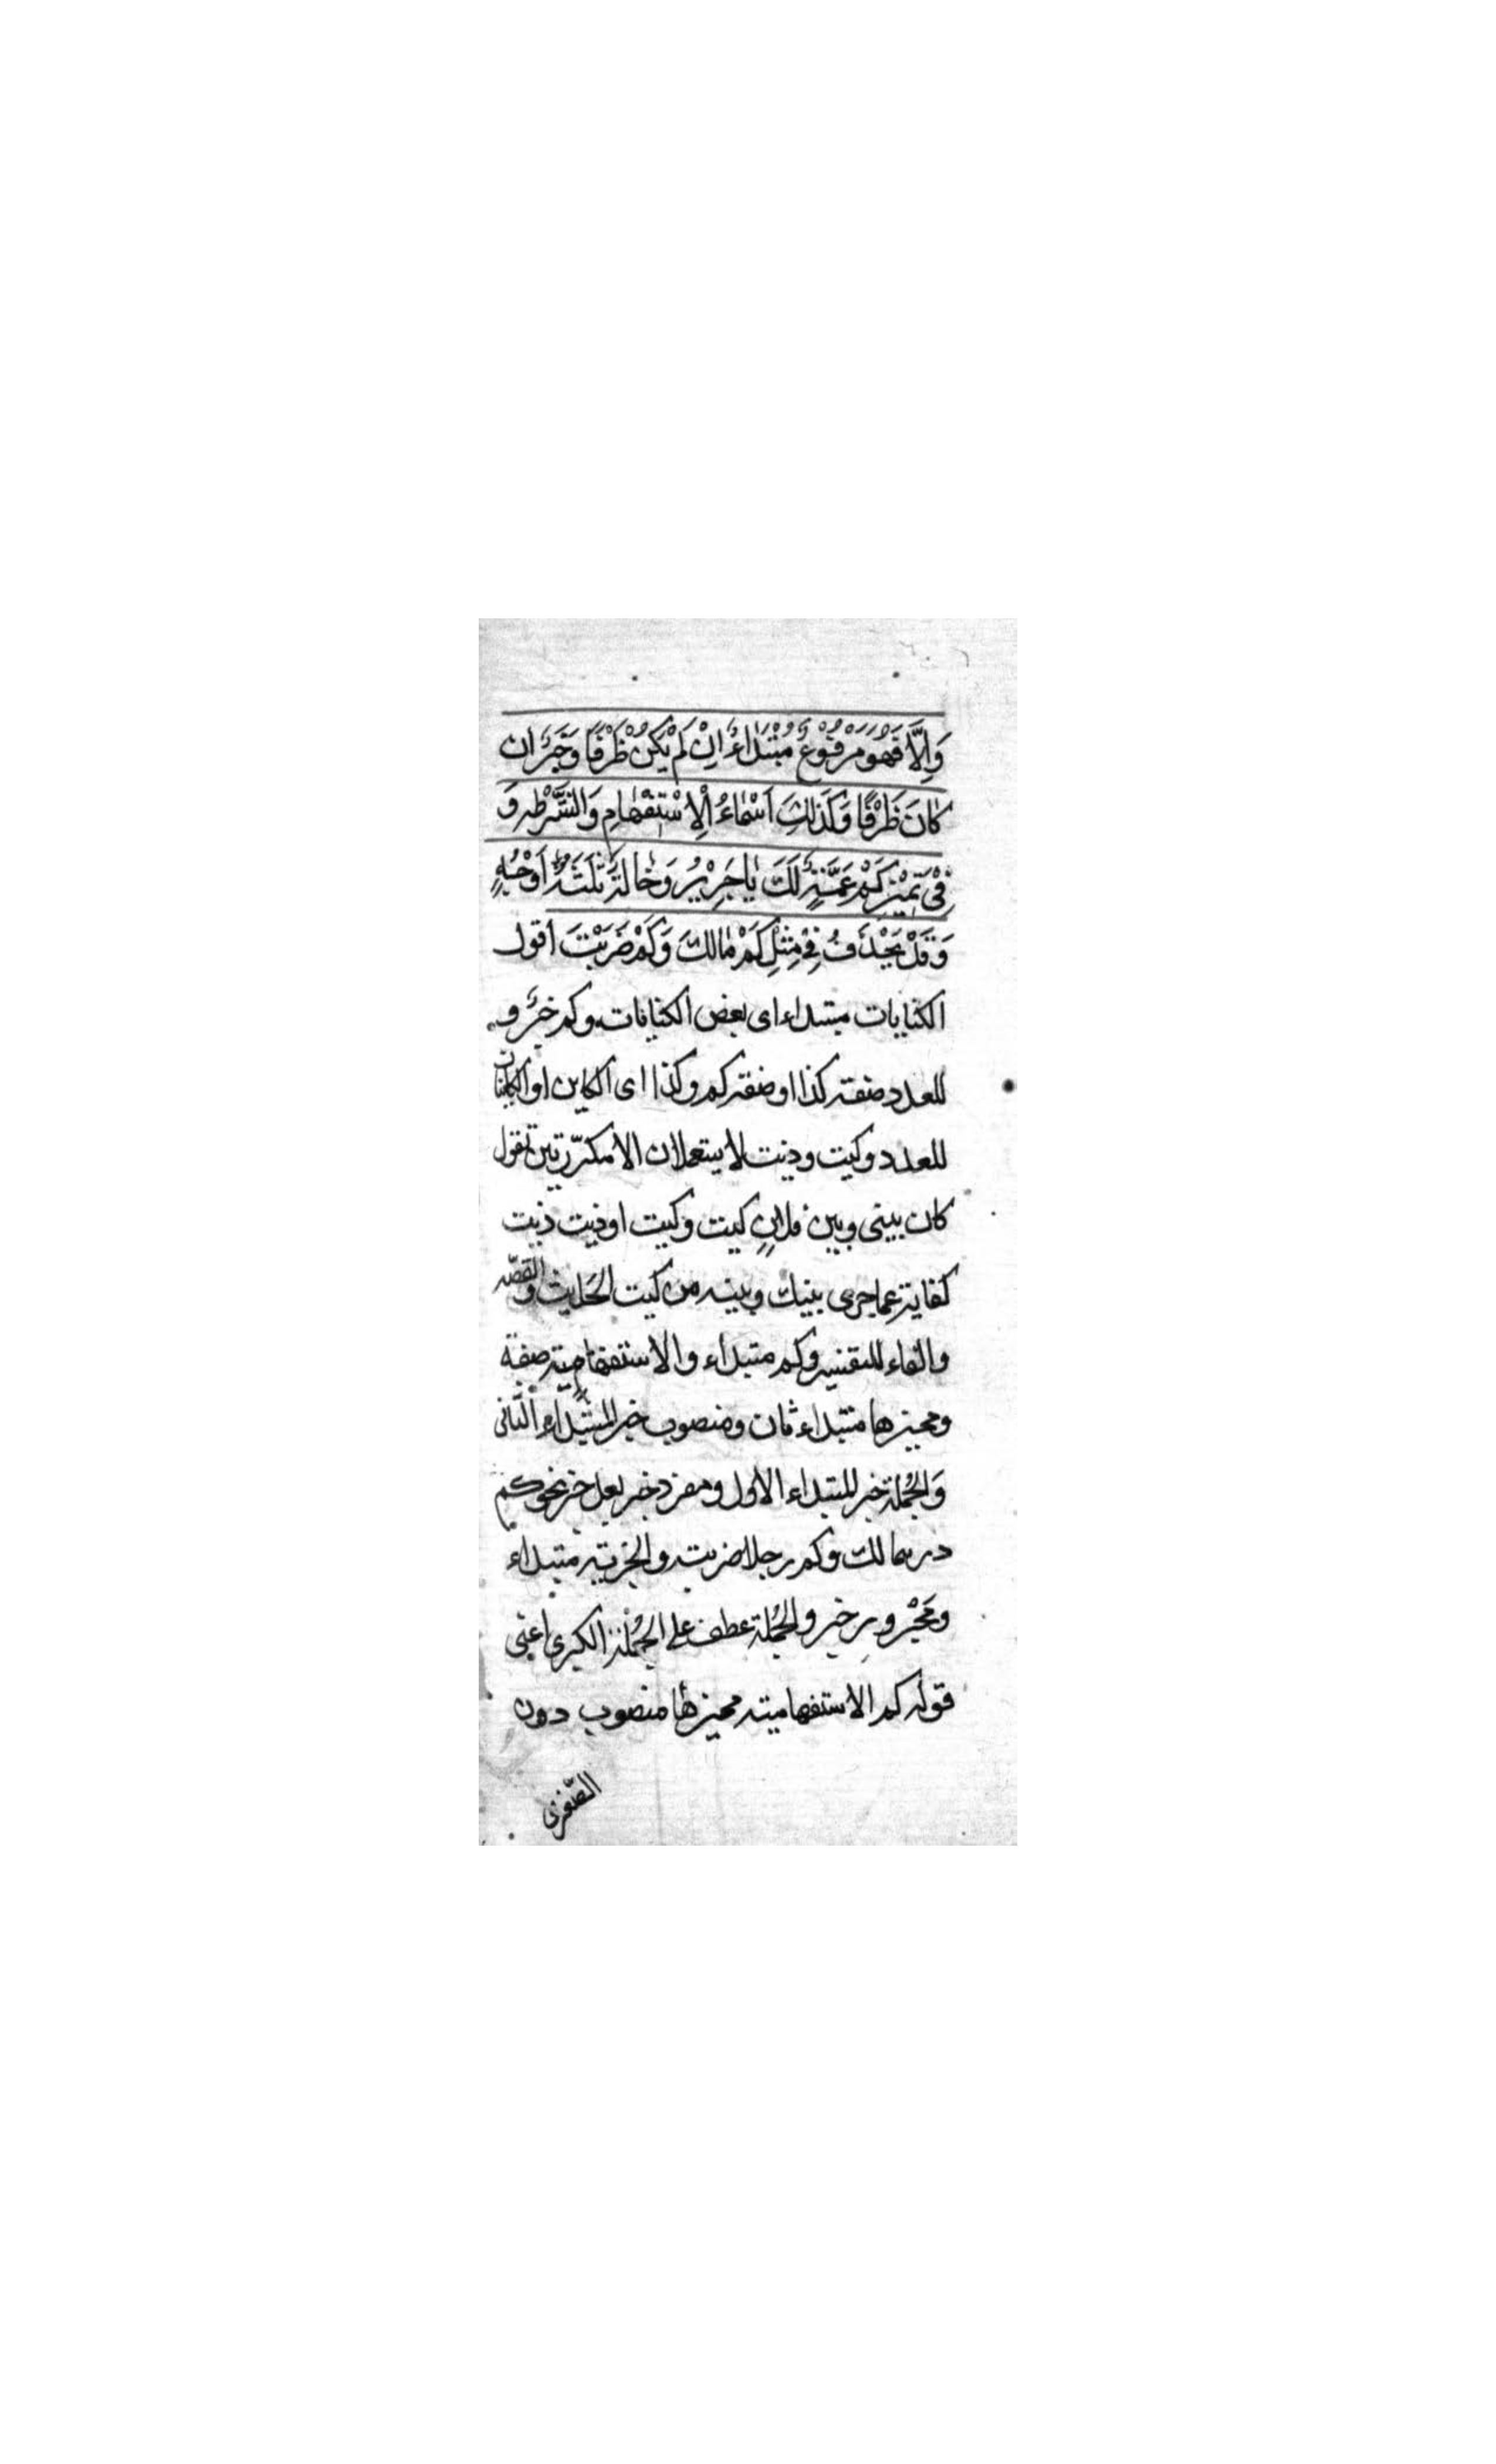 وَاِلَّا فَهُوَ مَرْفُوْعٌ مُبْتَدَاءٌ اِنْ لَمْ يَكُنْ ظَرْفًا وَخَبَرٌ ان
كَانَ ظَرْفًا وَكَذٰلِكَ اَسْمَاءُ الْاِسْتِفْهَامِ وَالشَّرْطِ وَ
فِيْ تَمِيْزِ كَمْ عَمَّةٍ لَكَ يَا جَرِيْرُ وَخَالَةٍ ثَلٰثَةُ اَوْجُهٍ
وَقَدْ يُحْذَفُ فِيْ مِثْلِ كَمْ مَالُكَ وَكَمْ ضَرَبْتَ اقول
الكنايات مبتداء اى بعض الكنايات وكم خبرٌ و
للعدد صفة كذا او صفة كم وكذا اى الكاين او الكاينان
للعدد وكيت وذيت لا يستعملان الا مكرّرتين تقول
كان بينى وبين فلانٍ كيت وكيت او ذيت ذيت
كفاية عما جرى بينك وبينه من كيت الحَديث والقصّه
والفاء للتفسير وكم مبتداء والاستفهامية صفة
ومميزها مبتداء ثان ومنصوب خبر المبتداء الثّانى
وَالجُملة خبر للمبتداء الاول ومفرد خبر بعد خبر نحو كم
درهما لك وكم رجلا ضربت والخبرية مبتداء
ومَجْرور خبر والجُملة عطف على الجُملة الكبرى اعنى
قوله كم الاستفهامية مميزها منصوب دون
الصّغرى